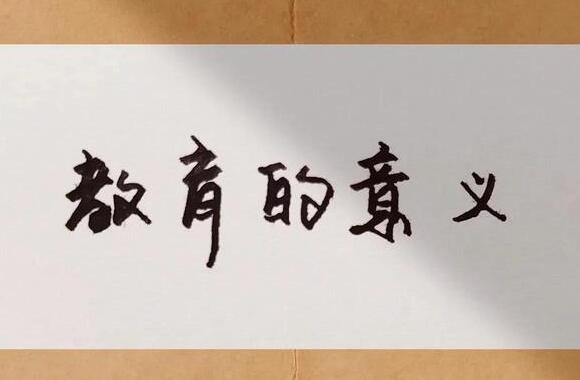 教育的意义